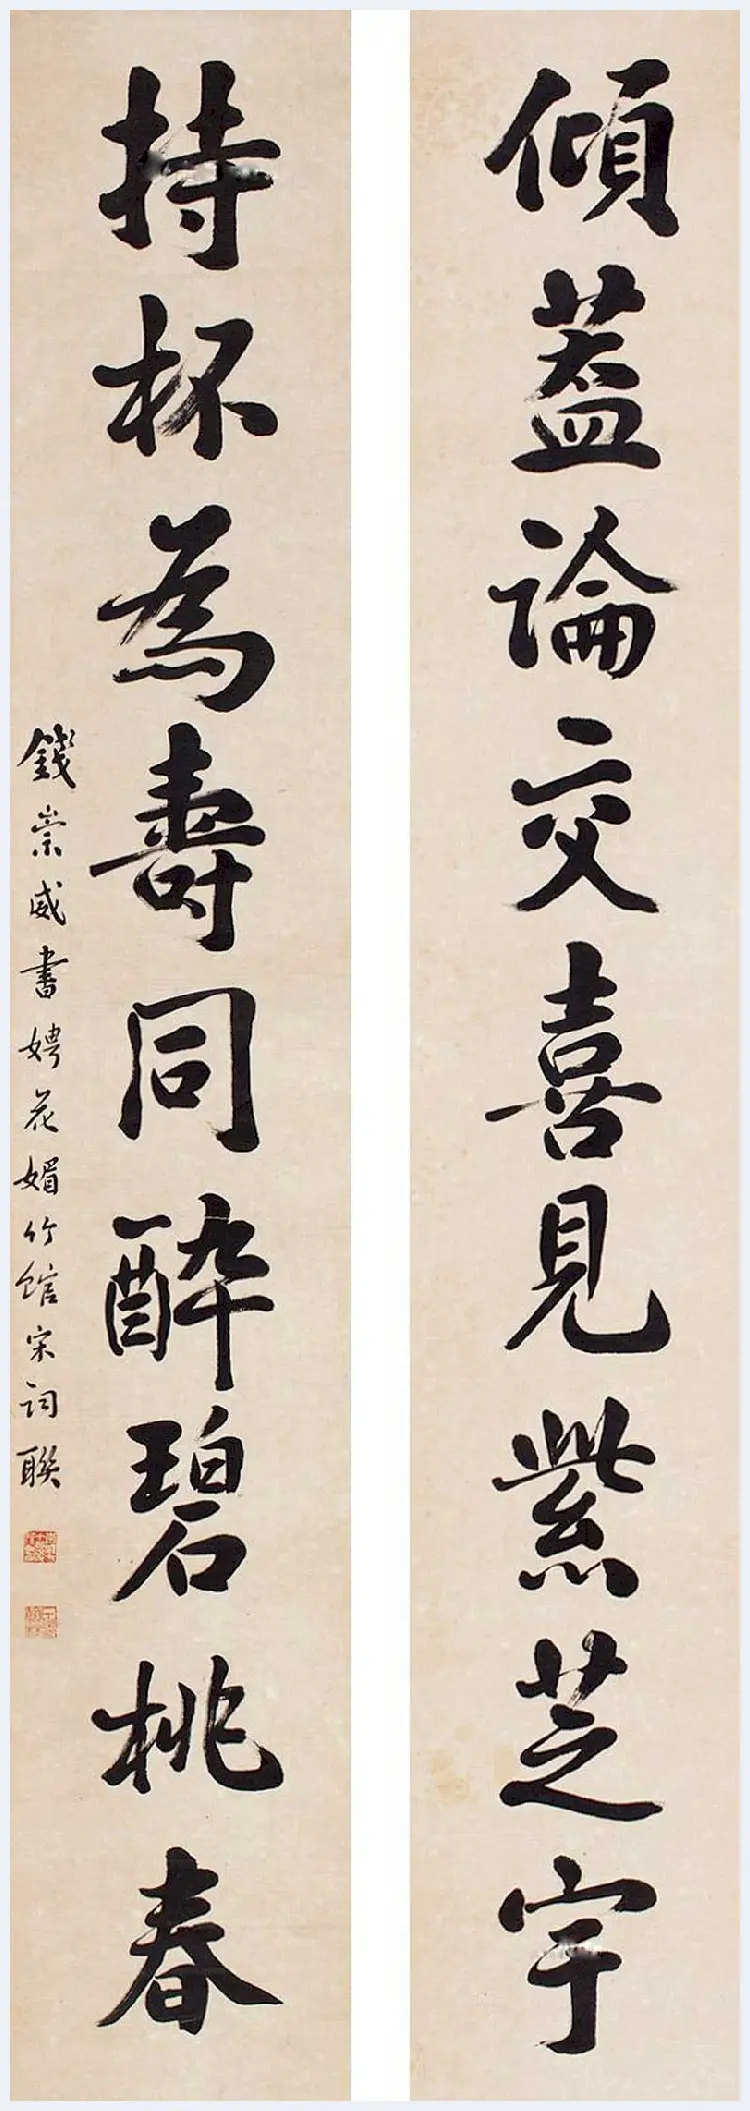 傾蓋論交喜見紫芝宇
持杯為壽同醉碧桃春
錢崇威書娉花媚竹館宋詞聯